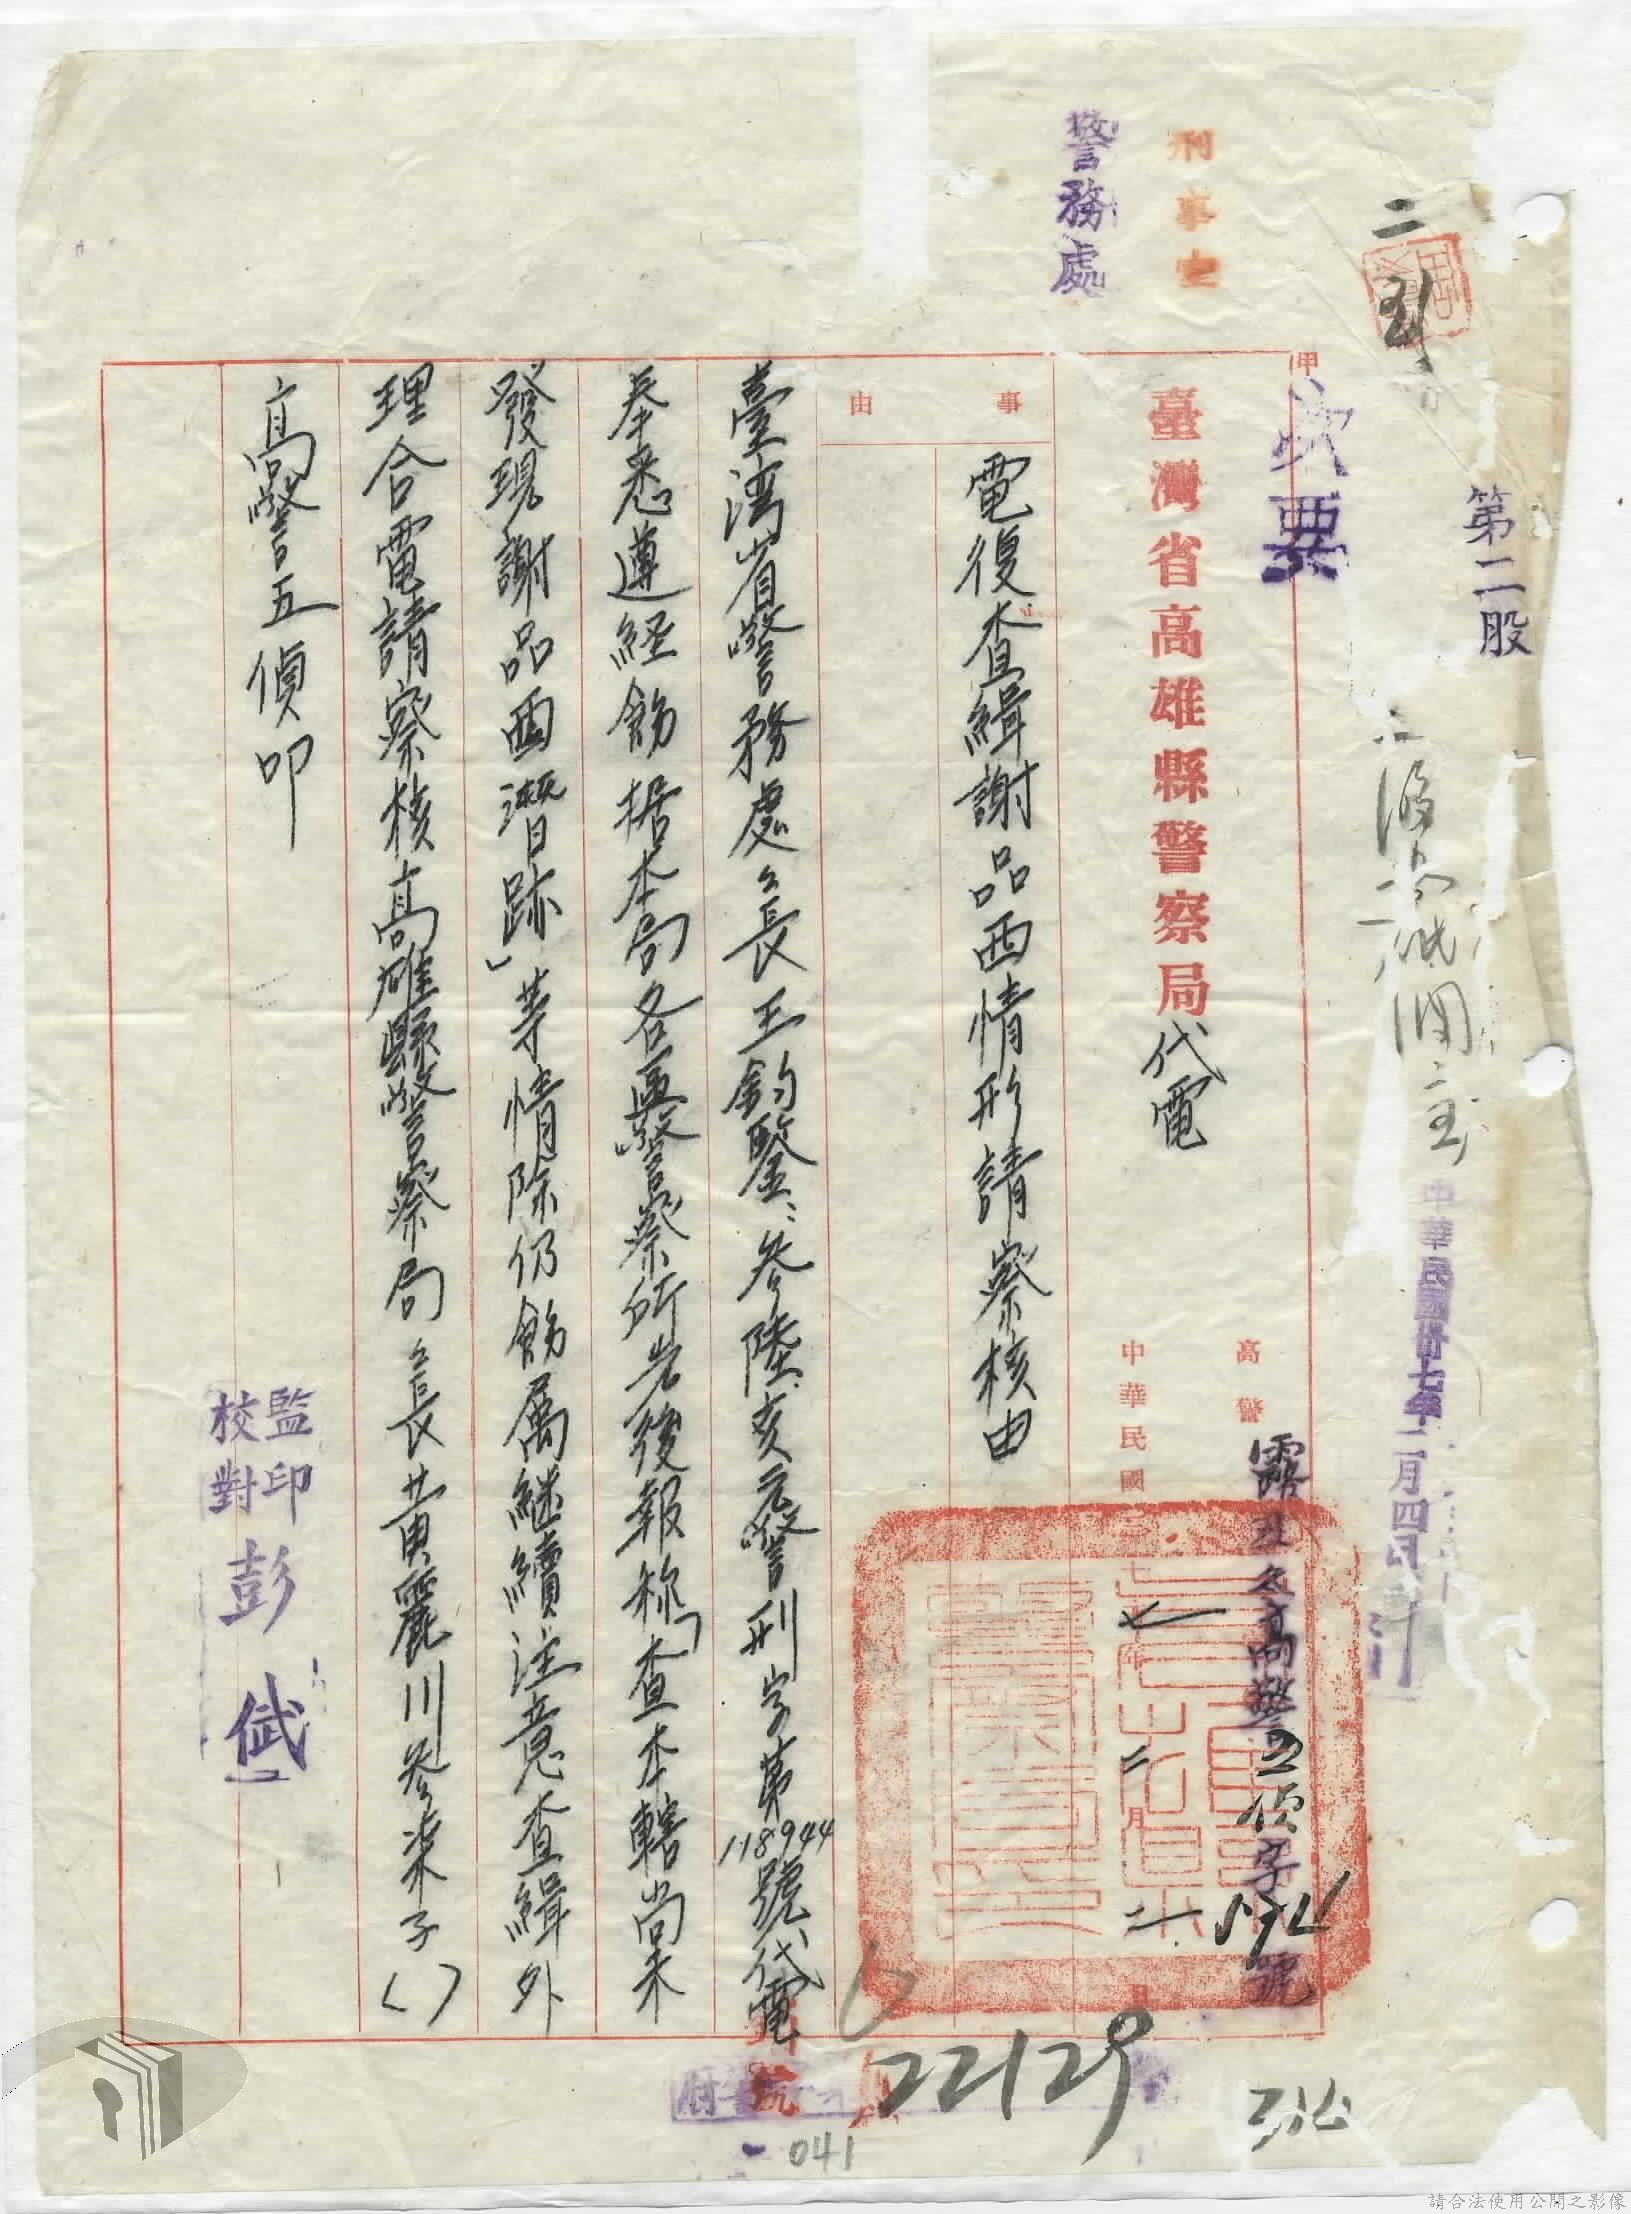 刑事室
警務處
第二股
中華民國卅七年二月四日
甲
臺灣省高雄縣警察局代電
高警
五偵字
號
中華民國三十七年二月二日
事由
電復查緝謝品西情形請察核由
臺湾省警務處々長王鈞鑒:參陸亥元警刑字第118944號代電
奉悉遵経飭据本局各區警察所先後報称「查本轄尚未
發現謝品西潛跡」等情除仍飭属継續注意查緝外
理合電請察核高雄縣警察局々長黄麗川參柒子( )
高警五偵叩
監印
校對
彭斌
22129
041
請合法使用公開之影像